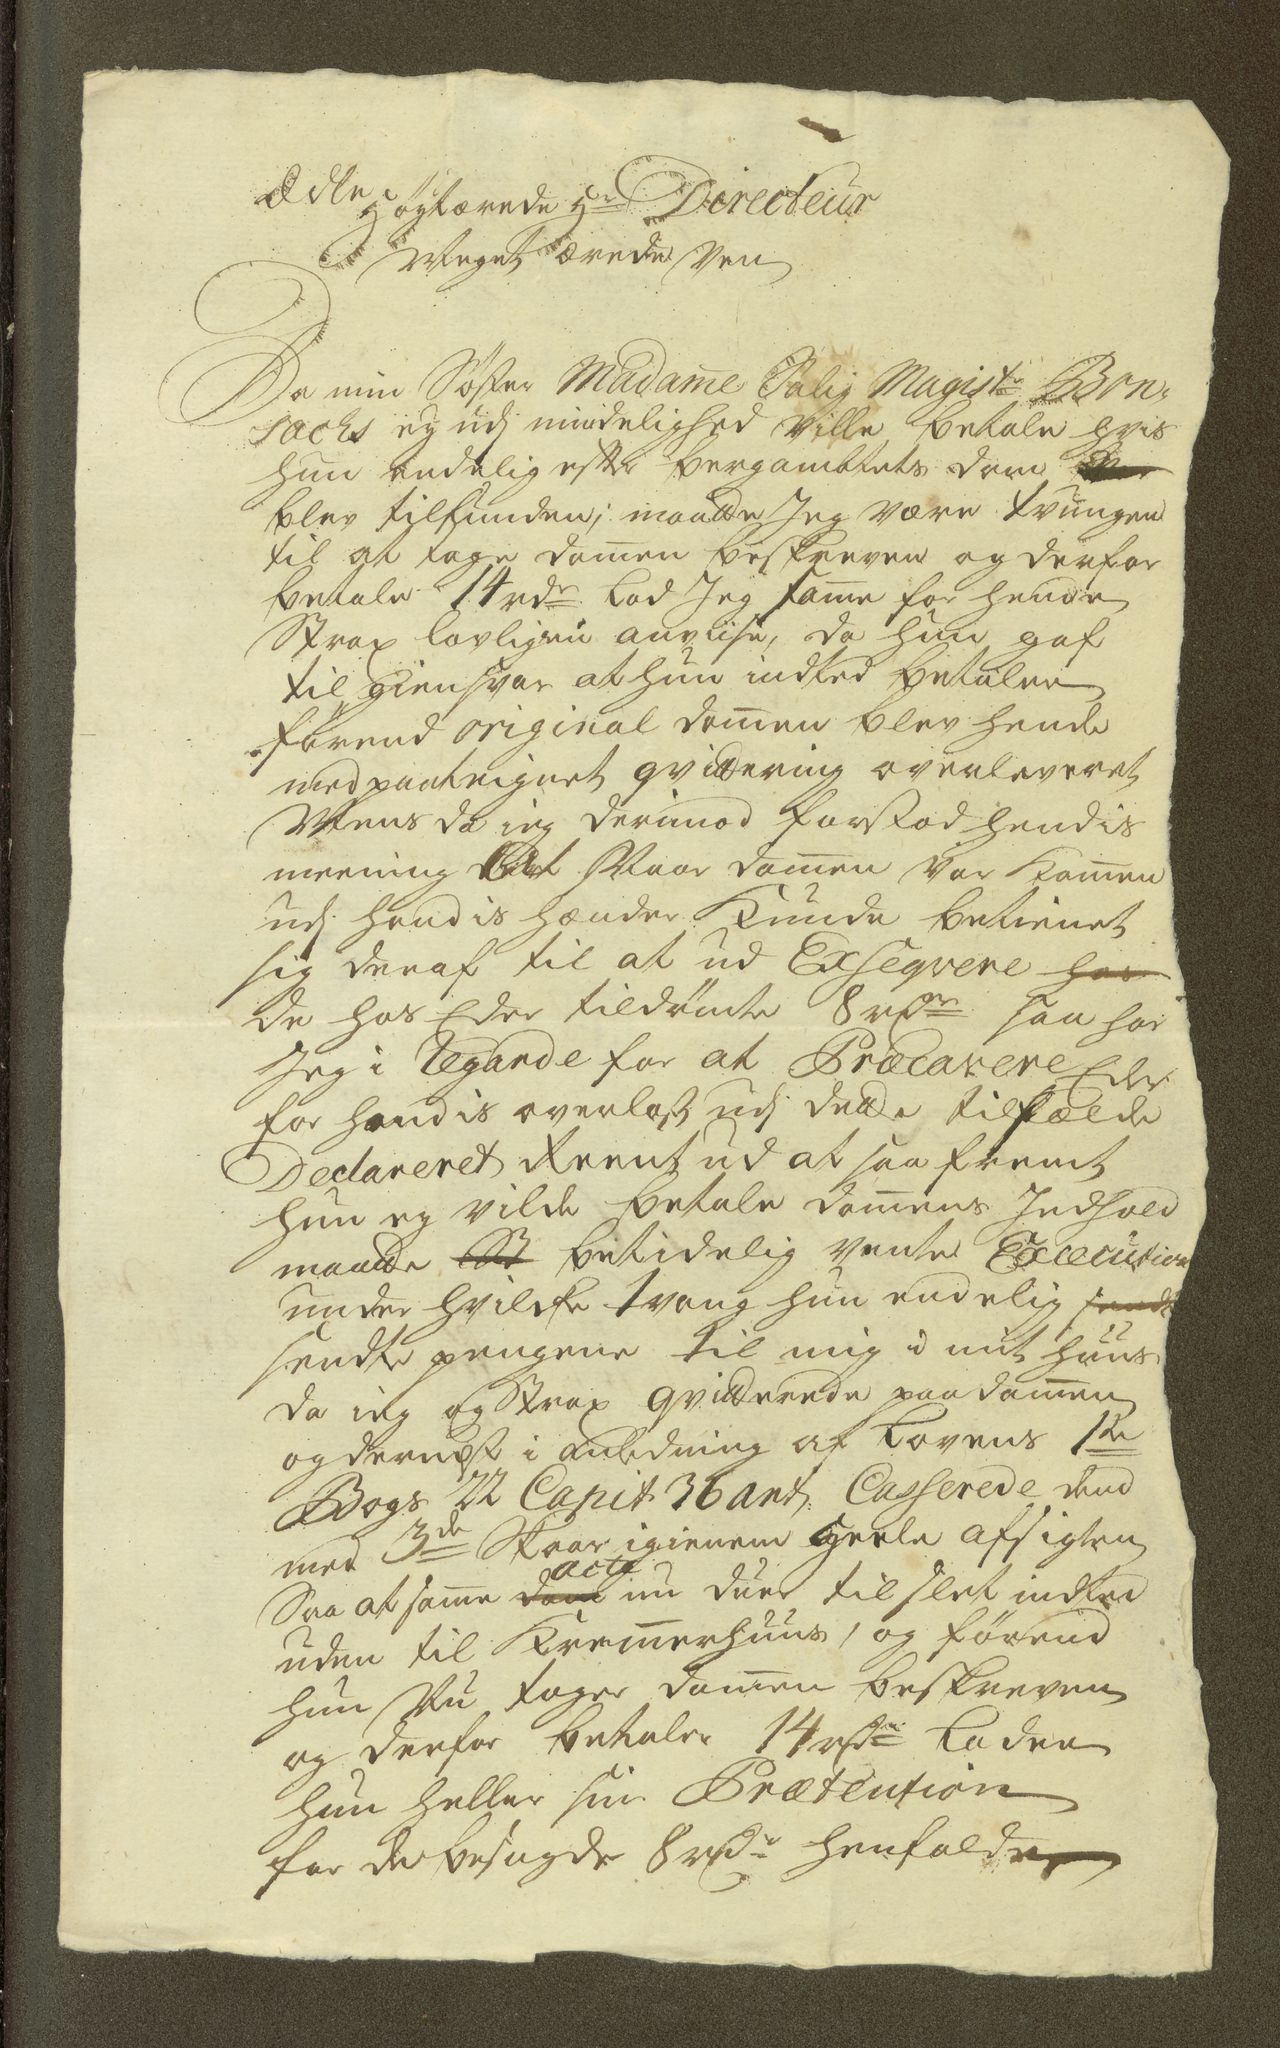 Ædle
Høgtærede Hr Directeur
Meget ærede Ven
Da min Søster Madame Salig Magistr Bon-
sachs ej udj mindelighed Ville betale hvis
hun endelig efter bergambtets dom
blev tilfunden; maatte Jeg være tvungen
til at tage domen beskreven og derfor
betale 14 rdr Lod Jeg same for hende
Strax lovligen anviise, da hun gaf
til giensvar at hun indted betaler
førend original domen blev hende
med paateignet qvittering overleveret
Mens da ieg derimod forstod hendis
meening at Naar domen var komen
udj hendis hænder Kunde betienet
sig deraf til at ud Exseqvere hos
de hos Eder tildømte 8 rdr saa har
Jeg i Regarde for at Præcavere Eder
for hendis overlast udj dette tilfælde
Declareret Reent ud at saa fremt
hun ej vilde betale domens Indhold
maatte betidelig vente Execution
under hvilke tvang hun endelig sendt
sendte pengene til mig i mit huus
da ieg og Strax qvitterede paa domen
og dernest i anledning af Lovens 1te
Bogs 22 Capit 36 art. Casserede dend
med 3de Skaar igienem heele afsigten
Saa at same dom acte nu duer til slet indted
uden til Kremerhuus, og førend
hun Nu tager domen beskreven
og derfor betaler 14 rdr Lader
hun heller sin Prætention
for de besagde 8 rdr henfalde